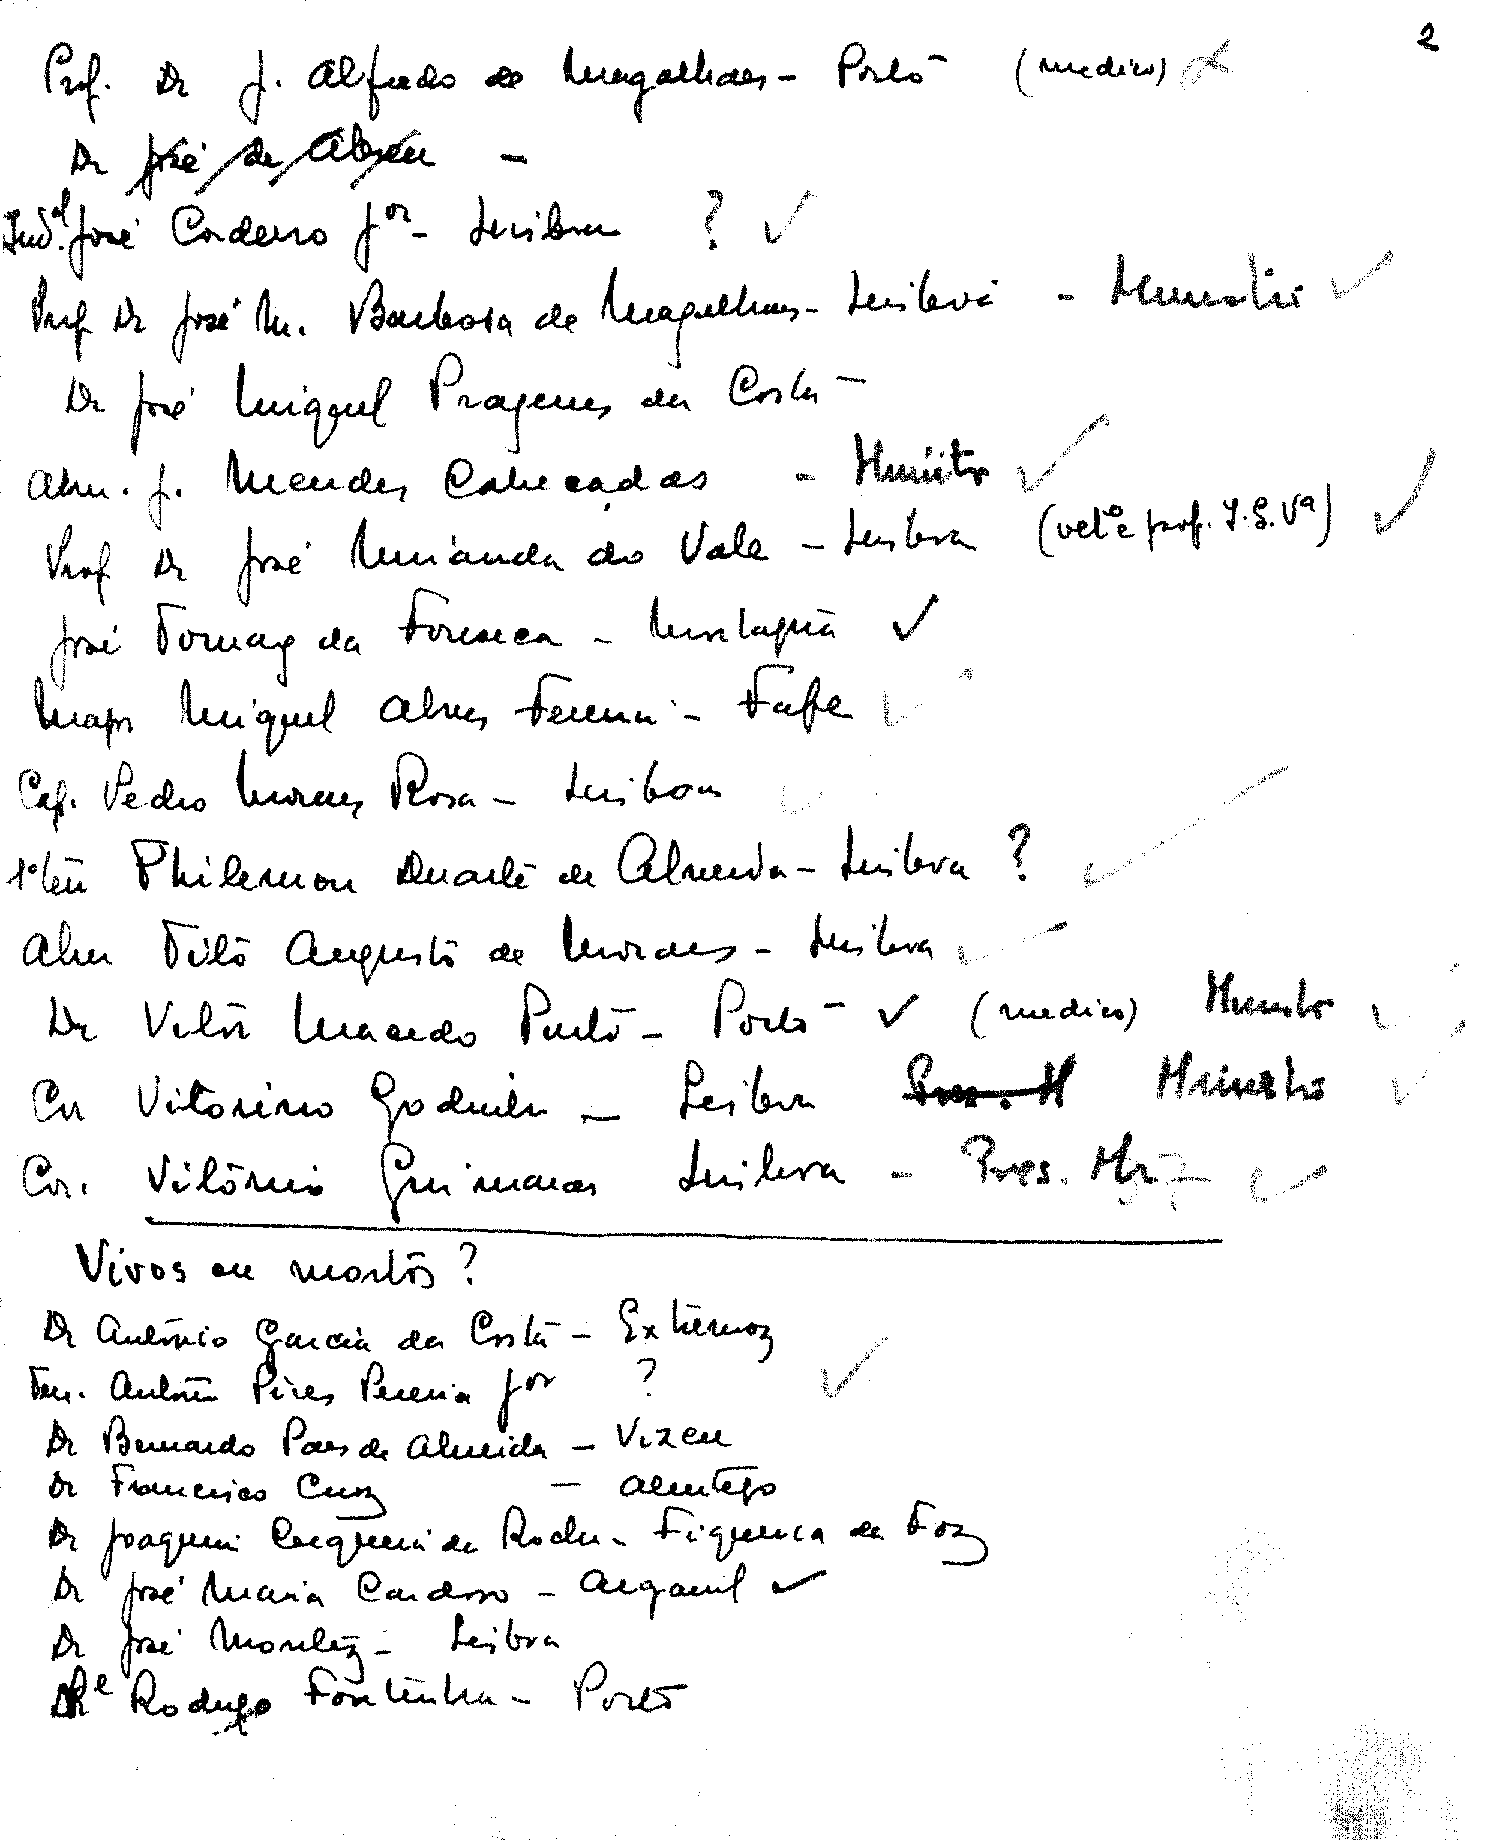 2
Prof. Dr J. Alfredo de Magalhães - Porto (medico)
Dr José de Abreu -
Ind.al José Cordeiro Jor - Lisboa ?
Prof Dr José M. Barbosa de Magalhães - Lisboa - Ministro
Dr José Miguel Pragenes da Costa -
Alm. J. Mendes Cabeçadas - Ministro
Prof Dr José Miranda do Vale - Lisboa (vet.o e prof. I.S.Va)
José Tomaz da Fonseca - Mortagua
Major Miguel Alves Ferreira - Fafe
Cap. Pedro Moraes Rosa - Lisboa
1º ten Philemon Duarte de Almeida - Lisboa ?
Alm Tito Augusto de Moraes - Lisboa
Dr Vitor Macedo Pinto - Porto (medico) Ministro
Cor Vitorino Godinho - Lisboa Pres. M Ministro
Cor. Vitorino Guimarães Lisboa - Pres. Min
Vivos ou mortos ?
Dr António Garcia da Costa - Extremoz
Ten. António Pires Pereira Jor ?
Dr Bernardo Paes de Almeida - Vizeu
Dr Francisco Cruz - Alentejo
Dr Joaquim Cerqueira da Rocha - Figueira da Foz
Dr José Maria Cardoso - Arganil
Dr José Montez - Lisboa
Rodrigo Fontinha - Porto